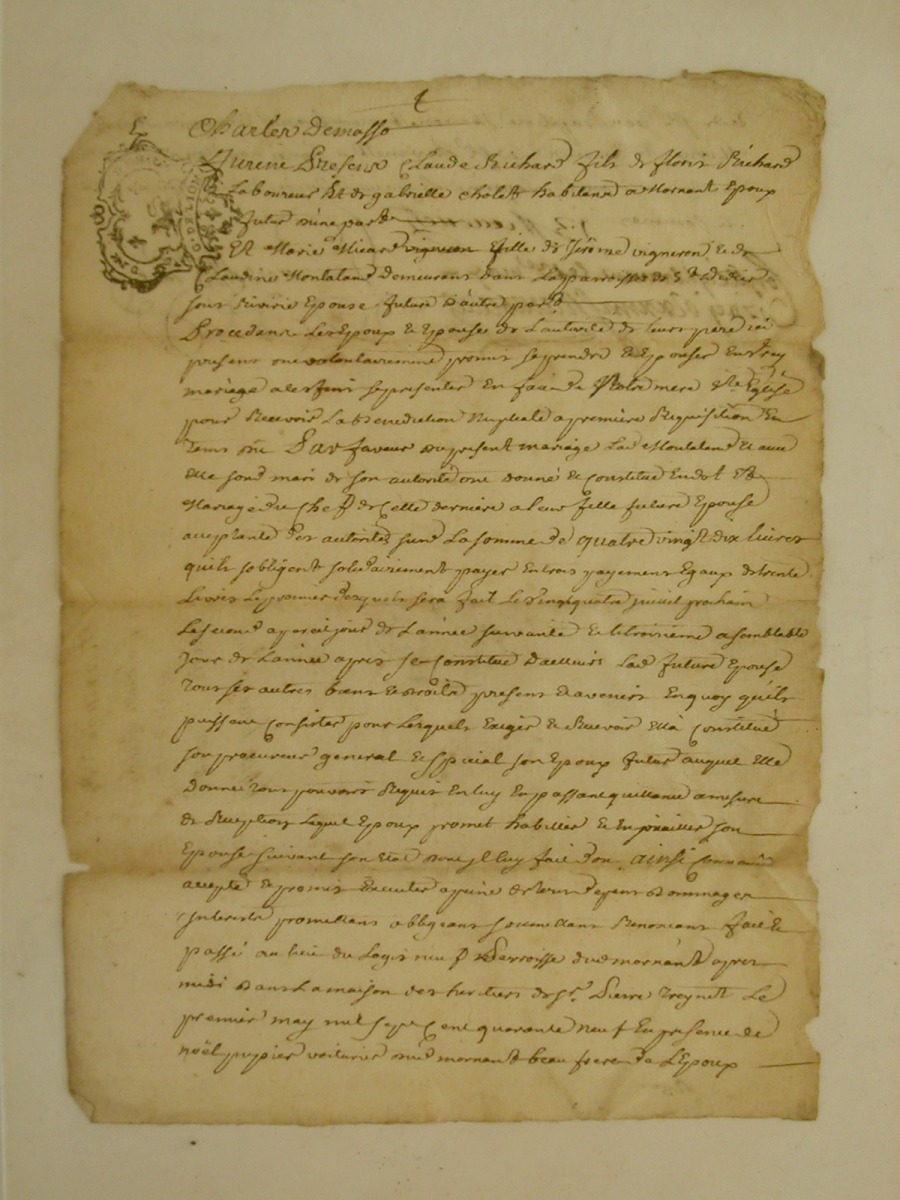 Charles Demasso
Furent Presens Claude Richard fils de floris Richard
Laboureur Et de gabrielle Cholett habitans a Mornant Epoux
futur d'une part
Et Marie Micard vigneron fille de Jérôme vigneron & de
Claudine Montaland demeurans dans La parroisse de St didier
sous Riverie Epouse future d'autre part
Procedans Les Epoux & Epouse de L'autorité de leurs pere ici
presens ont volontairement promis se prendre & Epouser En vray
mariage a les fins se presenter En face de Notre mere Ste Église
pour Recevoir La benediction Nuptiale a premiere Requisition En
tems du Par faveur du present mariage Lad Montaland & avec
Elle sond mari de son autorité ont donné & Constitué En dot Et
Mariage du Chef de Cette derniere a leur fille future Epouse
acceptante des autorités susd La somme de quatre vingt dix livres
quils s'obligent solidairement payer En trois payemens Egaux de trente
Livres Le premier desquels sera fait Le vingt quatre juillet prochain
Le second a pareil jour de L'année suivante & le troisième a semblable
jour de L'année apres se Constitue D'ailleurs Lad future Epouse
Tous ses autres biens & droits presens & avenirs En quoy qu'ils
puissent Consister pour Lesquels Exiger & Recevoir Ella Constitué
son procureur general & special son Epoux futur auquel Elle
donne Tous pouvoirs Requis En luy En passant quittance a mesure
de Reception Lequel Epoux promet habiller & Enjoailler son
Epouse suivant son Etat dont Il luy fait don ainsi Convenu
accepté & promis Executer a peine de tous depens dommages
Interets promettans obligeans soumettans Renonceans fait &
passé au lieu du Logis neuf Parroisse dud mornant apres
midi dans La maison des heritiers de Sr Pierre Treynet Le
premier may mil sept Cent quarante neuf En presence de
noël pupier voiturier dud mornant beau frere de L'Epoux